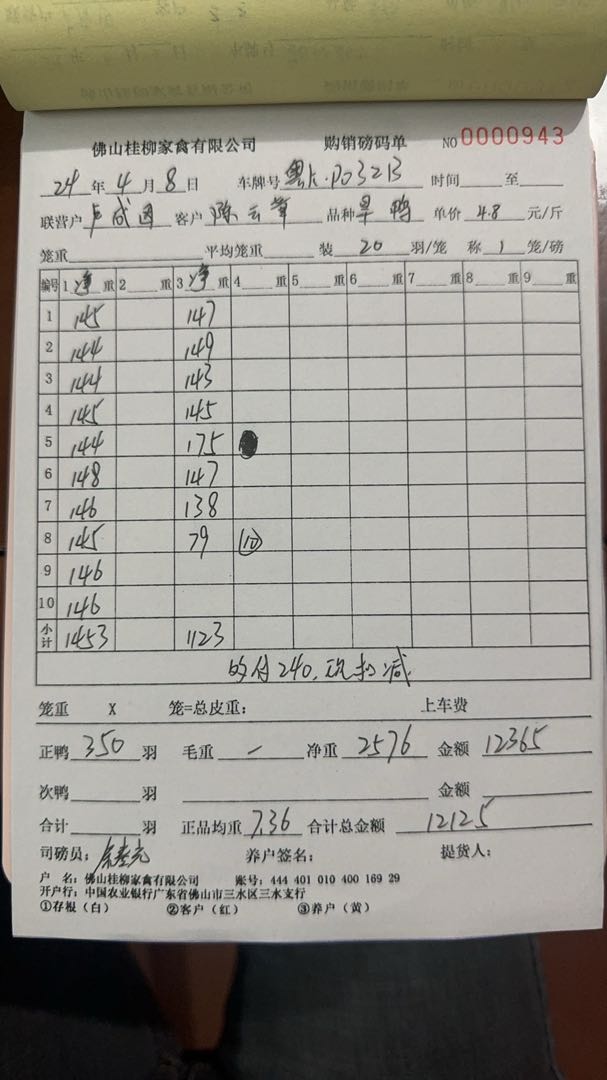 佛山桂柳家禽有限公司 购销磅码单 NO 0000943
24 年 4 月 8 日 车牌号 粤 D03213 时间 至
联营户 客户 陈云 品种 旱鸭 单价 4.8 元/斤
笼重 平均笼重 装 20 羽/笼 称 1 笼/磅
编号 1 净 重 2 重 3 净 重 4 重 5 重 6 重 7 重 8 重 9 重
1 145 147
2 144 149
3 144 143
4 145 145
5 144 175
6 148 147
7 146 138
8 145 79 (10)
9 146
10 146
小计 1453 1123
付240,现扣减
笼重 X 笼=总皮重: 上车费
正鸭 350 羽 毛重 — 净重 2576 金额 12365
次鸭 羽 金额
合计 羽 正品均重 7.36 合计总金额 12125
司磅员: 养户签名: 提货人:
户 名:佛山桂柳家禽有限公司 账号:444 401 010 400 169 29
开户行:中国农业银行广东省佛山市三水区三水支行
①存根(白) ②客户(红) ③养户(黄)